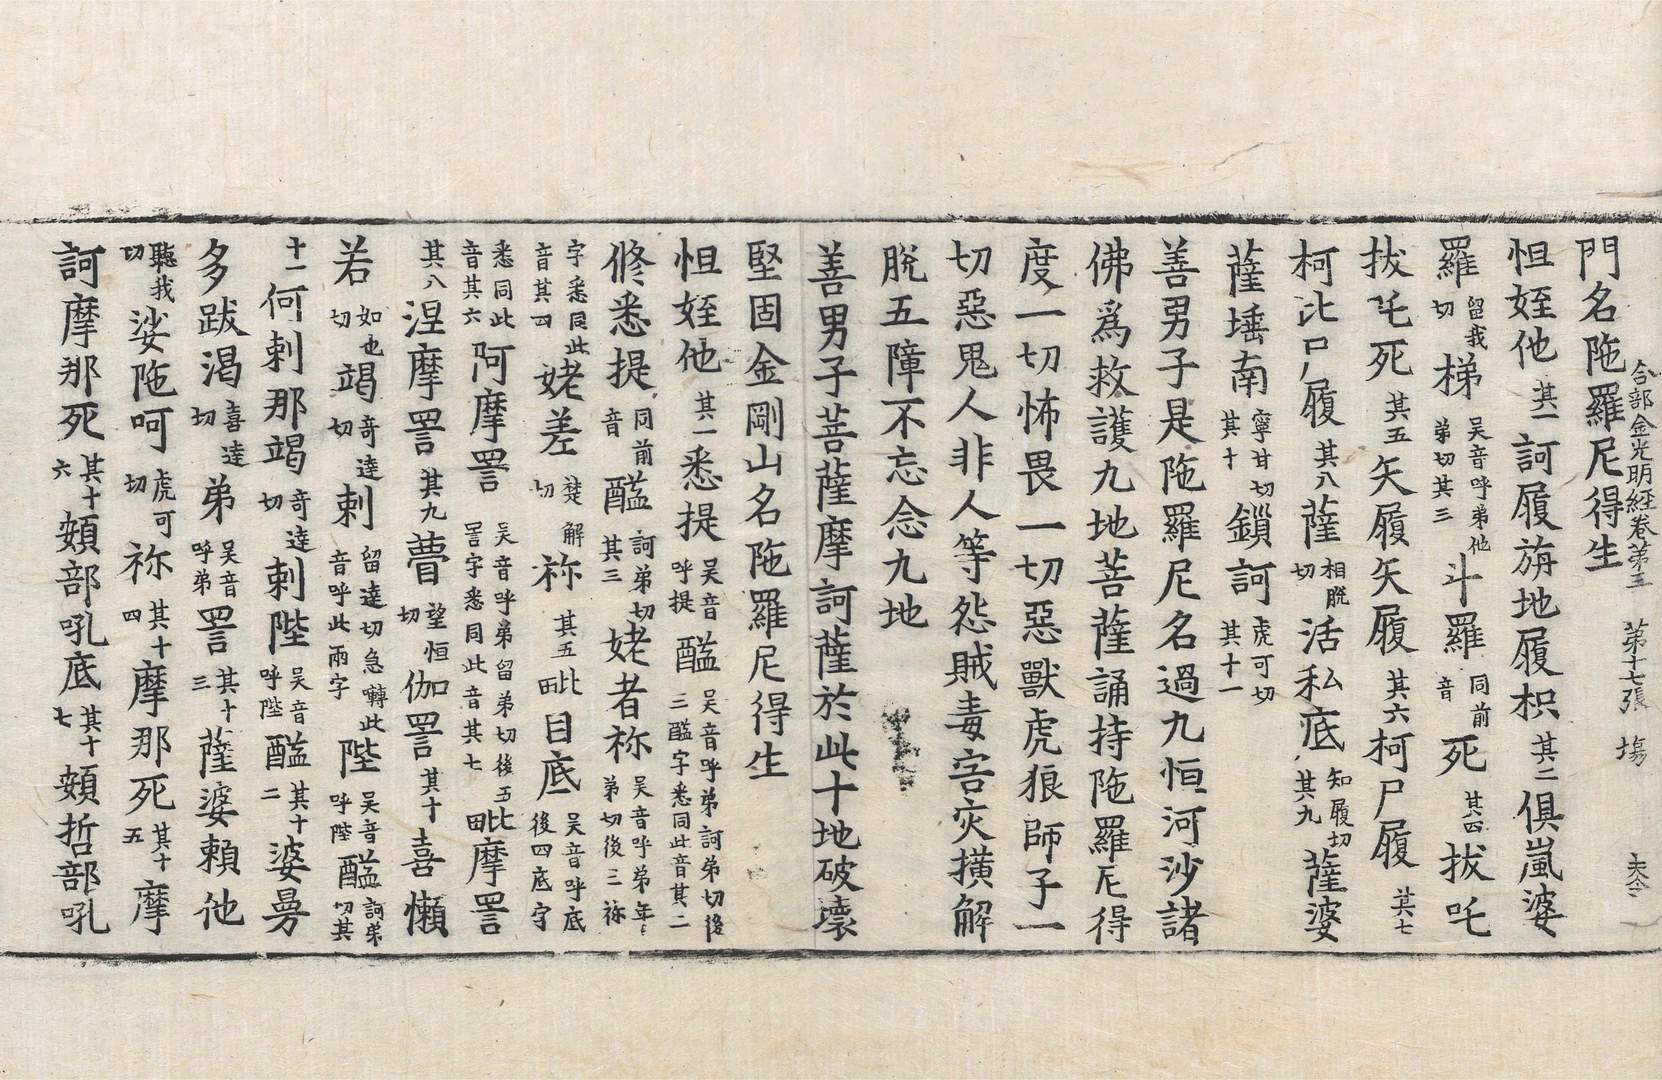 合部金光明經卷第三 第十七張 塲
門名陁羅尼得生
怛姪他其一訶履旃地履枳其二俱嵐婆
羅留我切梯吴音呼弟他弟切其三斗羅同前音死其四拔吒
拔吒死其五矢履矢履其六柯尸履其七
柯比尸履其八薩相脱切活私底知履切其九薩婆
薩埵南寧甘切其十鎻訶虎可切其十一
善男子是陁羅尼名過九恒河沙諸
佛爲救護九地菩薩誦持陁羅尼得
度一切怖畏一切惡獸虎狼師子一
切惡鬼人非人等怨賊毒害灾撗解
脱五障不忘念九地
善男子菩薩摩訶薩於此十地破壞
堅固金剛山名陁羅尼得生
怛姪他其一悉提吴音呼提醯吴音呼弟訶弟切後三醯字悉同此音其二
修悉提同前音醯訶弟切其三姥者祢吴音呼弟年弟切後三祢
字悉同此音其四姥差楚解切祢其五毗目底吴音呼底後四底字
悉同此音其六阿摩詈吴音呼弟留弟切後五詈字悉同此音其七毗摩詈
其八涅摩詈其九瞢望恒切伽詈其十喜懶
若如也切竭竒達切剌留達切急囀此音呼此兩字陛吴音呼陛醯訶弟切其
十一何剌那竭竒達切剌陛吴音呼陛醯其十二婆曼
多跋渴喜達切弟吴音呼弟詈其十三薩婆頼他
聽我切娑陁呵虎可切祢其十四摩那死其十五摩
訶摩那死其十六頞部吼底其十七頞哲部吼